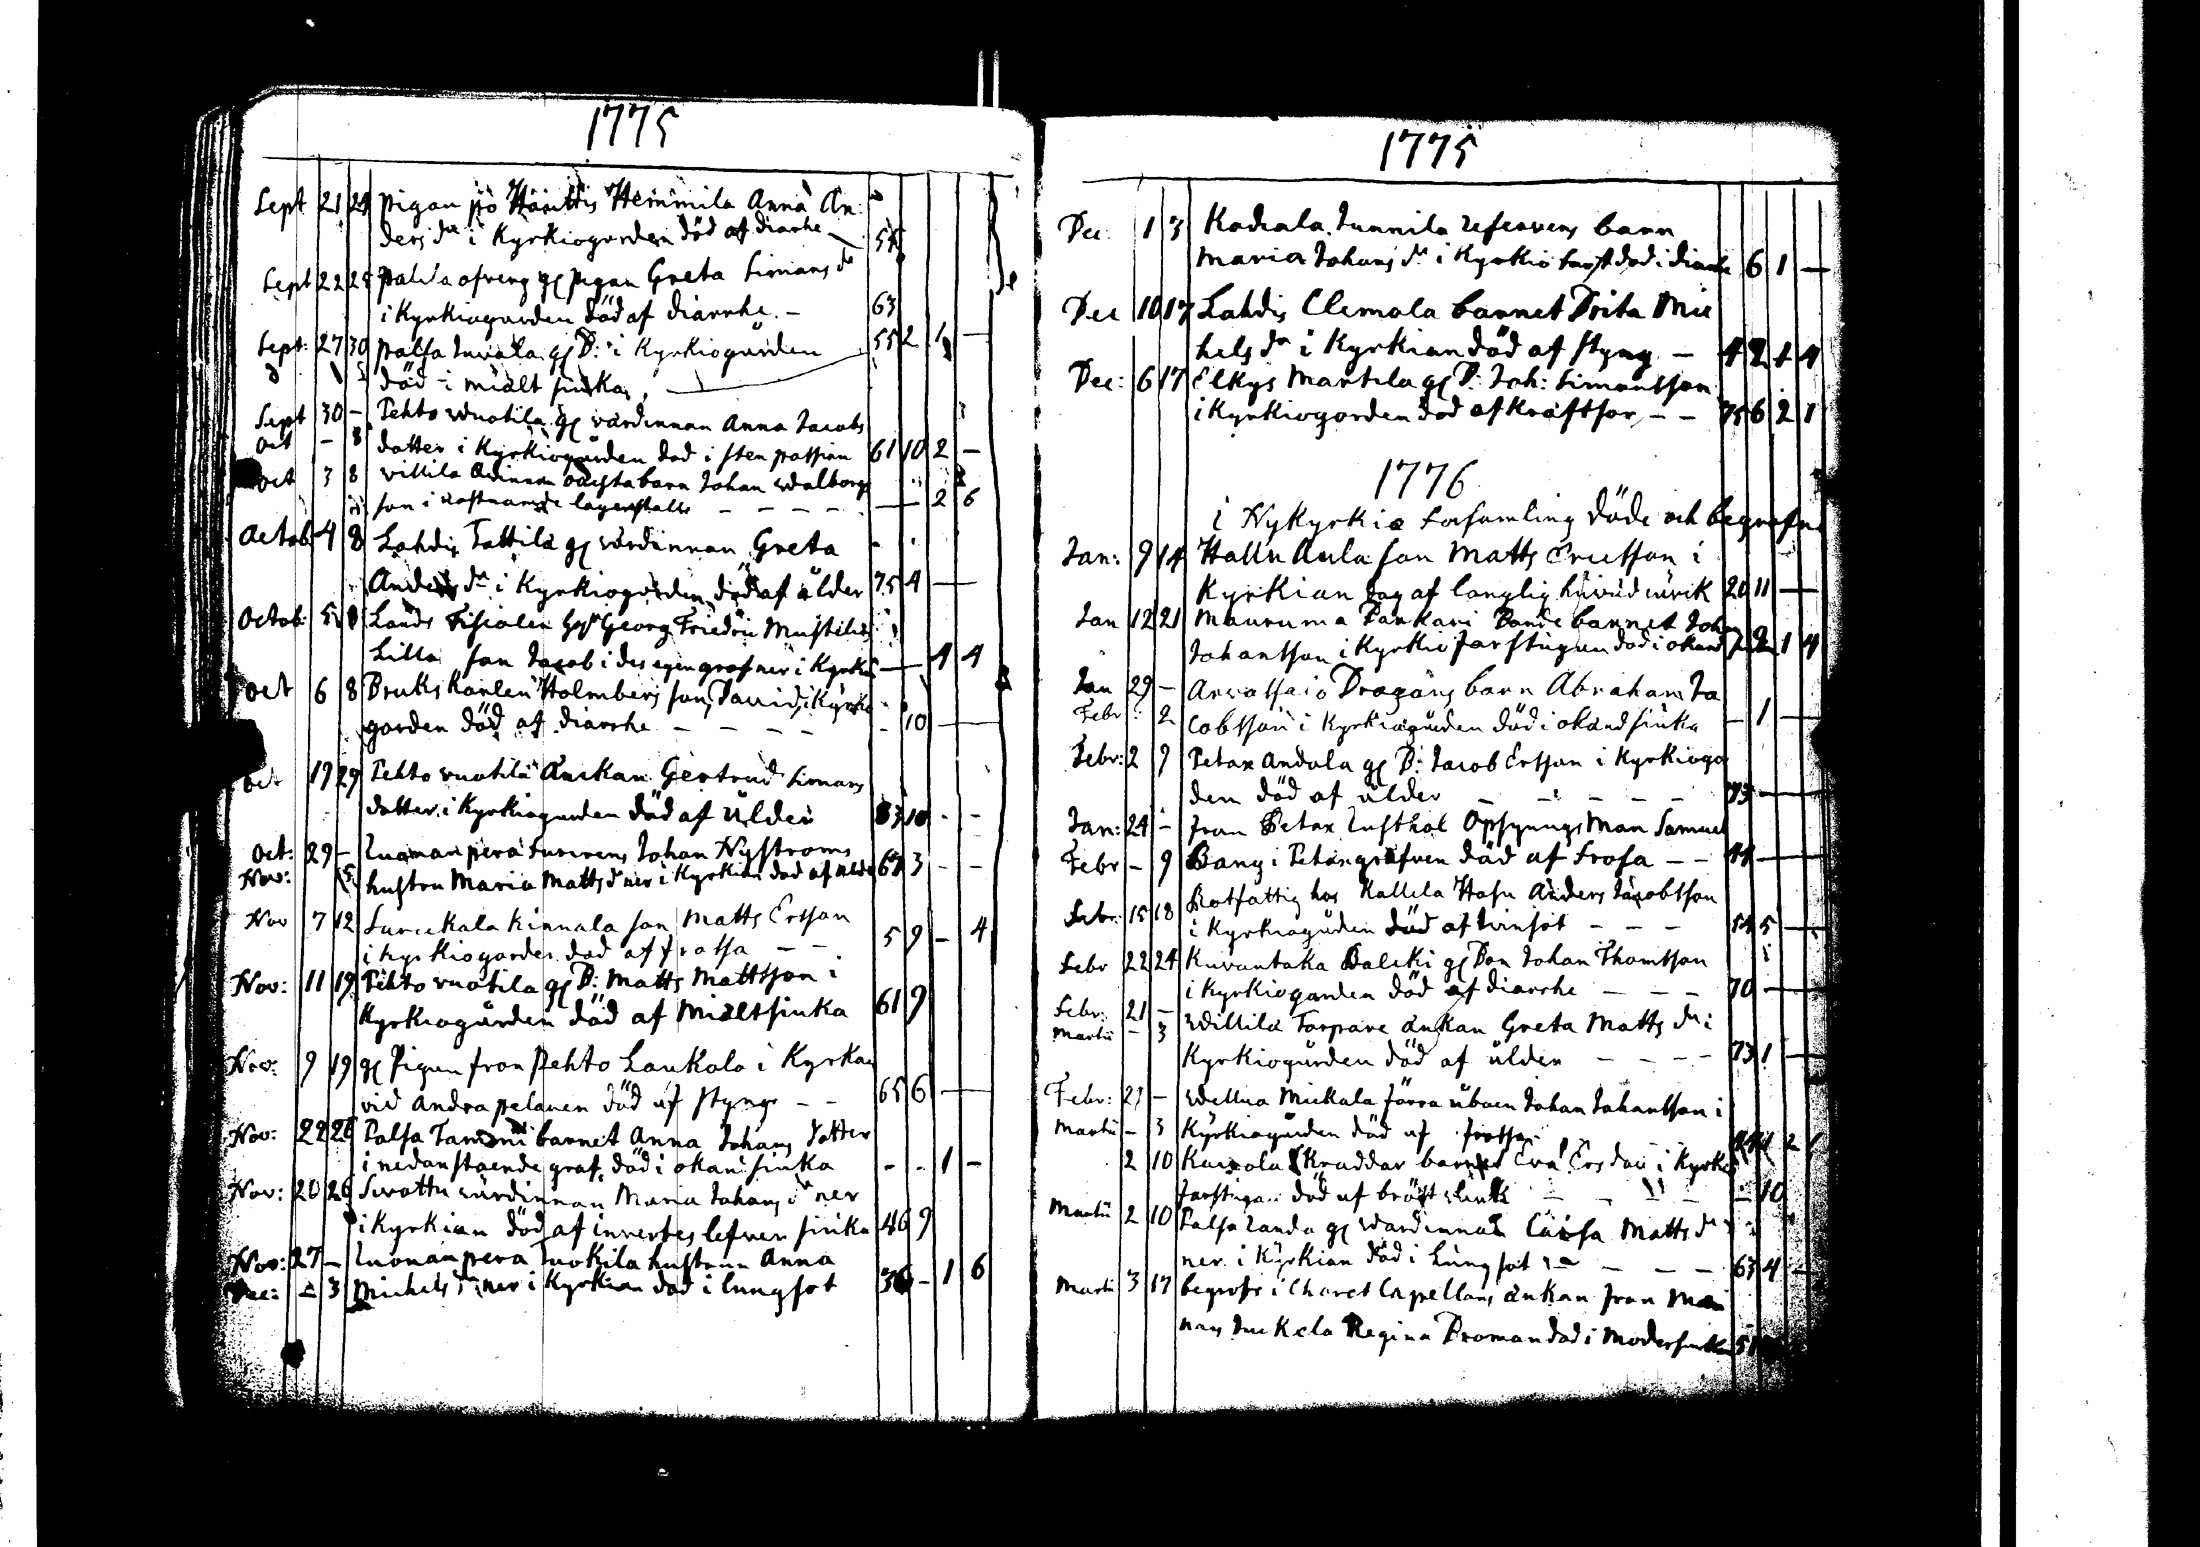 1775
Sept 21 29 pigan på Hänttis Heinmila Anna An:
ders dr i Kyrkiogården död af diarhe — 54
Sept 22 28 palsa ofreng gl pigan Greta Simons dr
i Kyrkiogården död af diarrhe. — 63
Sept: 27 30 palsa Juvala gl D: i Kyrkiogården 55 2 1 —
död i miält siuka
Sept 30 — Pehto wuotila gl värdinnan Anna Jacobs
oct — 8 dotter i Kyrkiogården död i sten passion 61 10 2 —
oct 3 8 villila barn Johan
son i lägerställe — — — — 2 6
Octob 4 8 Lahdis Tattila gl värdinnan Greta
Anders dr i Kyrkiogården död af ålder 75 4 —
Octob: 5 8 Lands Fiscalen Georg Friedric
Lilla son Jacob i des egen graf ner i Kyrki — 4 4
oct 6 8 Bruks Karlen Holmbers son David i Kyrkio
gården död af diarrhe — — — — 10 —
oct 19 29 Pehto vuotila Änckan Gertrud Simons
dotter i Kyrkiogården död af ålder 83 10 - -
Oct: 29 — Luoman perä Johan Nyströms
Nov: 5 hustru Maria Matts dr ner i Kyrkian död af ålder 67 3 - -
Nov 7 12 Kinnala son Matts Ersson
i kyrkiogården död af frossa — — 5 9 — 4
Nov: 11 19 Pehto vuotila gl D: Matts Mattsson i
Kyrkiogården död af Mieltsiuka 61 9
Nov: 9 19 gl Pigan från Pehto Laukola i Kyrkan
vid andra pelaren död af styng — — 65 6 —
Nov: 22 26 Palsa Tammi barnet Anna Johans dotter
i nedanstående graf, död i okänd siuka - - 1 -
Nov: 20 26 värdinnan Maria Johans dr ner
i Kyrkian död af invertes lefver siuka 46 9
Nov: 27 — Luoman perä Juokila hustrun Anna
Dec: — 3 Michels dr ner i Kyrkian död i lungsot 36 - 1 6
1775
Dec. 1 3 Kadiala Junnila barn
Maria Johans dr i Kyrkio död i diarhe 6 1 —
Dec 10 17 Lahdis Clemola barnet Brita Mic
hels dr i Kyrkian död af styng — 4 2 1 4
Dec: 6 17 Elkys Martila gl D: Joh: Simonsson
i Kyrkiogården död af Kräftsår — — 75 6 2 1
1776
i NyKyrkio Församling Döde och begrafne
Jan: 9 14 Hallu Aula son Matts Ericsson i
Kyrkian dog af långlig hufvud värk 20 11 —
Jan 12 21 Mauruma Pankari Bonde barnet Johan
Johansson i Kyrkio farstugun död i okänd 2 1 4
Jan 29 — Arvassalo Dragons barn Abraham Ja
Febr: 2 cobsson i Kyrkiogården död i okänd siuka — 1 —
Febr: 2 9 Petax Andula gl B: Jacob Ersson i Kyrkiogå
den död af ålder — — — — — 73 —
Jan: 24 — från Petax Lusthol Opsynings Man Samuel
Febr — 9 Bang i Petaxgrafven död af frosa — — 44 —
Febr: 15 18 Rotfattig hos Kallela Hasu Anders Jacobsson
i Kyrkiogården död af tvinsot — — — 54 5 —
Febr 22 24 Kuvantaka Balcki gl Bon Johan Thomsson
i Kyrkiogården död af diarrhe — — — 70 —
Febr: 21 —
Martii — 3 Willila Torpare änkan Greta Matts dr i
Kyrkiogården död af ålder — — — — 73 1 —
Febr: 27 — Wellua Mickala förra åboen Johan Johansson i
Martii — 3 Kyrkiogården död af frossa 2 1
2 10 Kairola Kraddar barnet Eva Ers dotter i Kyrkio
farstugan död af bröst siuk — — — — 10
Martii 2 10 Palsa Landa gl Wärdinnan Caisa Matts dr
ner i Kyrkian död i Lungsot — — — — 63 4 —
Marti 3 17 begrofs i Choret Capellans änkan från
Juckola Regina Broman död i Modersiuka 51